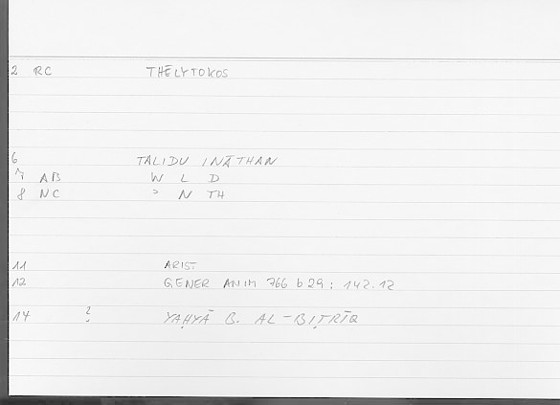 2 RC THĒLYTOKOS
6 TALIDU INĀTHAN
7 AB W L D
8 NC ʾ N TH
11 ARIST
12 GENER ANIM 766 b 29 : 142.12
14 ? YAḤYĀ B. AL-BIṬRĪQ